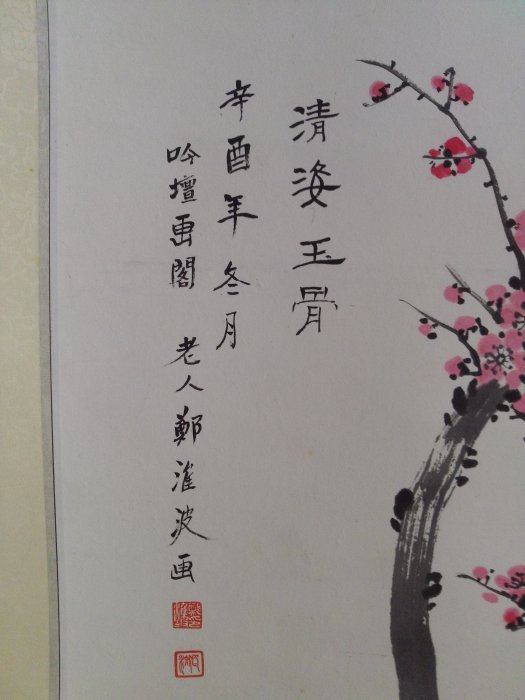 清姿玉骨
辛酉年冬月
吟壇画閣 老人鄭淮波画